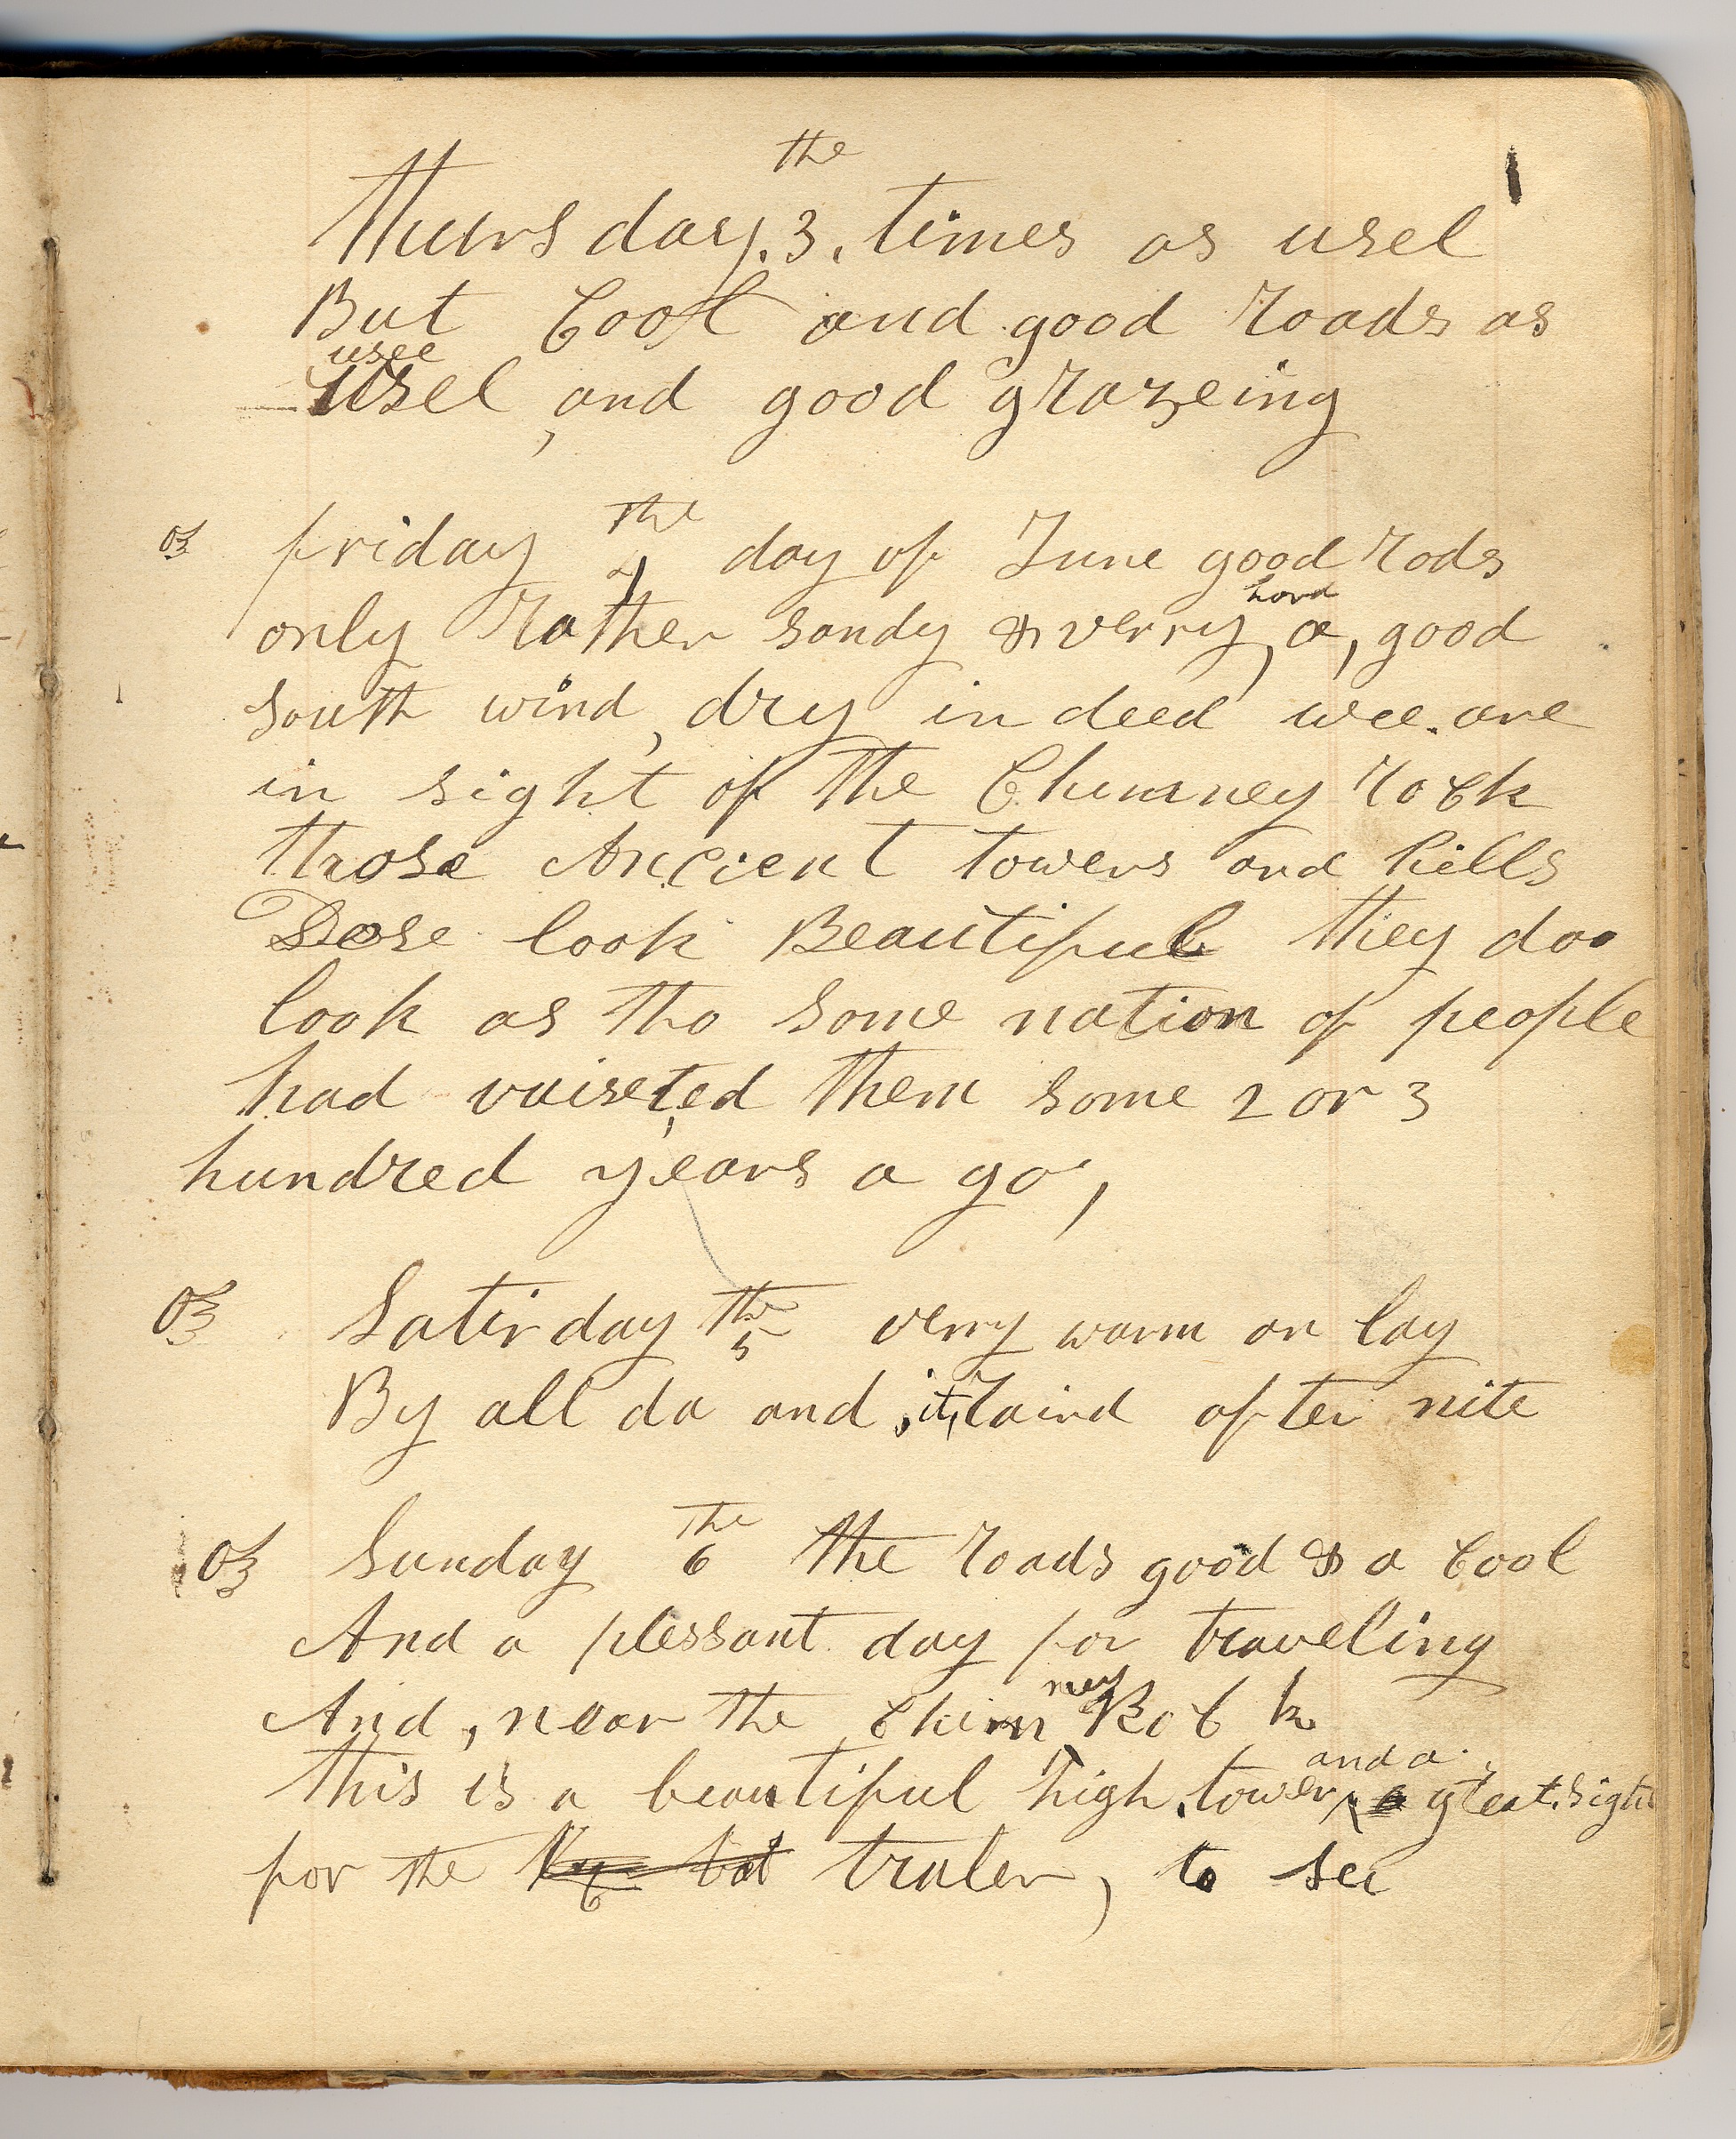 the
Thursday. 3. times as usel
But Cool and good roads as
usee
usel, and good grazeing
friday the 4 day of June good rods
hard
only rather sandy & verry, a, good
south wind, dry in deed wee are
in sight of the Chimney rock
those Ancient towers and hills
Dose look Beautiful they doo
look as tho some nation of people
had vuiseted them some 2 or 3
hundred years a go,
Satirday the 5 verry warm an lay
By all da and, it, raind after nite
Sunday the 6 the roads good & a Cool
And a plessant day for traveling
ney
And, near the Chim Rock
and a
this is a beautiful high, tower, great sight
for the traler, to see